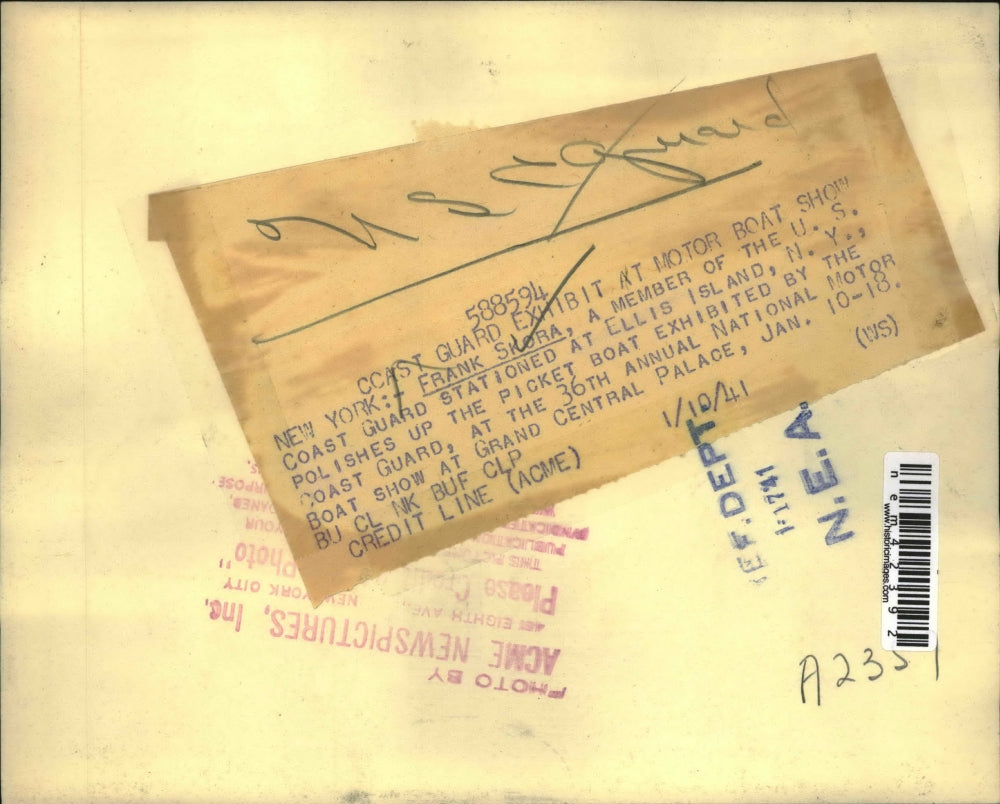 U S C Guard
588594
COAST GUARD EXHIBIT AT MOTOR BOAT SHOW
NEW YORK:- FRANK SKORA, A MEMBER OF THE U. S.
COAST GUARD STATIONED AT ELLIS ISLAND, N. Y.,
POLISHES UP THE PICKET BOAT EXHIBITED BY THE
COAST GUARD, AT THE 36TH ANNUAL NATIONAL MOTOR
BOAT SHOW AT GRAND CENTRAL PALACE, JAN. 10-18.
BU CL NK BUF CLP
CREDIT LINE (ACME) 1/10/41 (WS)
EF. DEPT.
1-1741
N. E. A.
nem42392
www.historicimages.com
A2351
PHOTO BY
ACME NEWSPICTURES, Inc.
461 EIGHTH AVE., NEW YORK CITY
Please Photo"
THIS
PUBLICATION YOUR